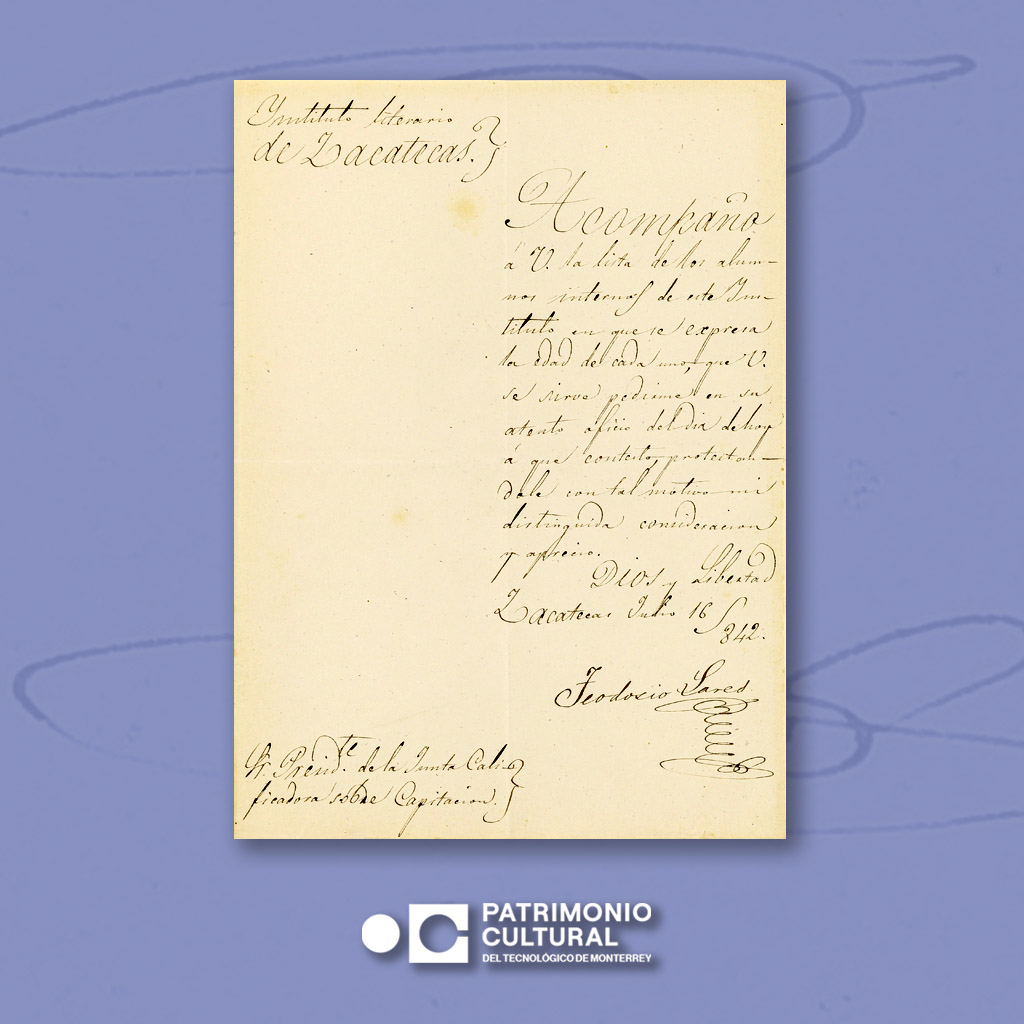 Ynstituto literario
de Zacatecas.
Acompaño
á V. la lista de los alum-
nos internos de este Yns-
tituto en que se expresa
la edad de cada uno, que V.
se sirve pedirme en su
atento oficio del dia de hoy
á que contesto, protestan-
dole con tal motivo mi
distinguida consideracion
y aprecio.
Dios y Libertad
Zacatecas Julio 16
842.
Teodosio Lares
Sr. Presid.te de la Junta Cali-
ficadora sobre Capitacion.
PATRIMONIO
CULTURAL
DEL TECNOLÓGICO DE MONTERREY